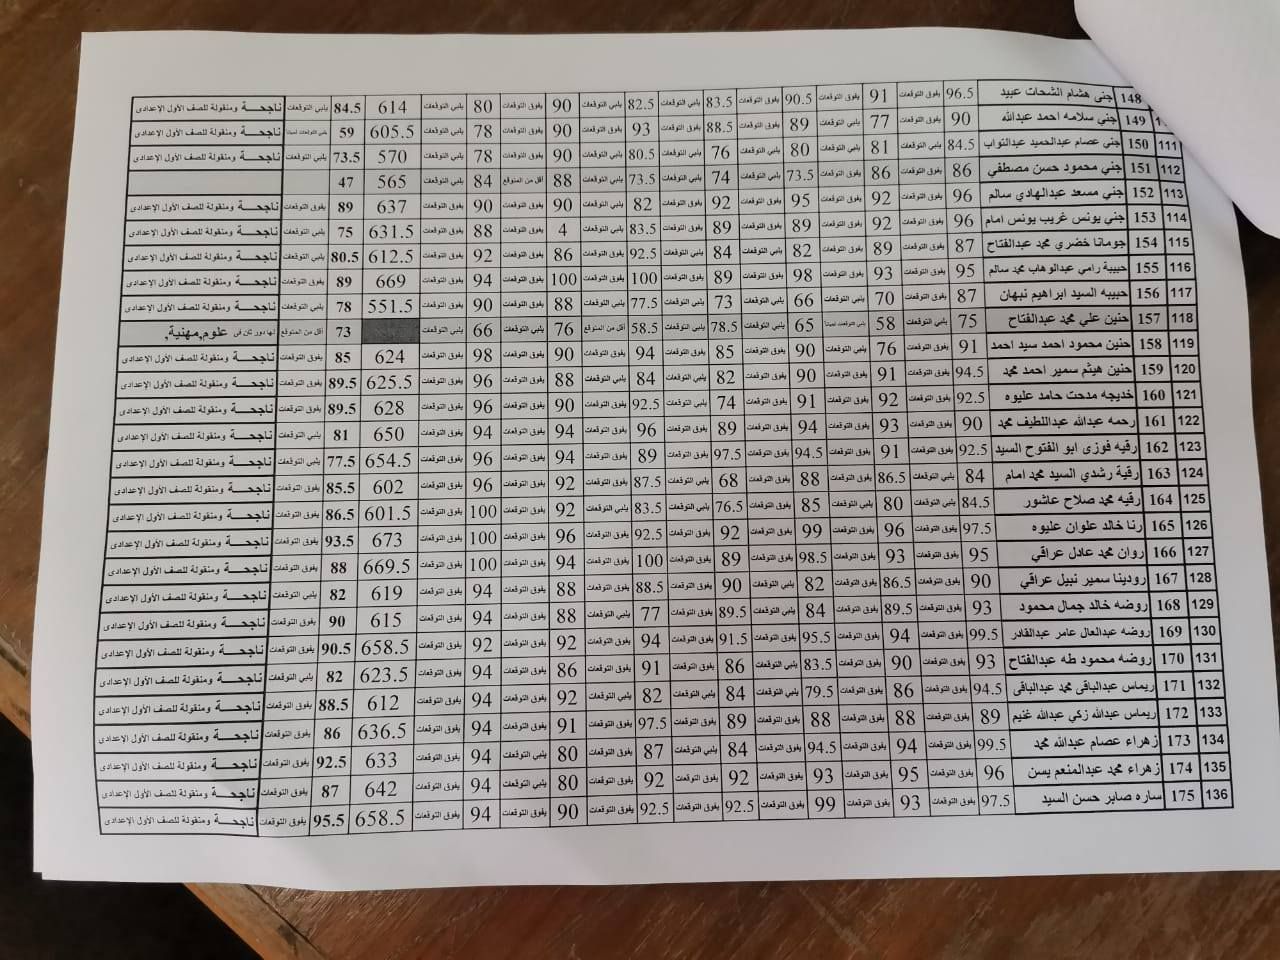 148 جنى هشام الشحات عبيد 96.5 يفوق التوقعات 91 يفوق التوقعات 90.5 يفوق التوقعات 83.5 يلبي التوقعات 82.5 يلبي التوقعات 90 يفوق التوقعات 80 يلبي التوقعات 614 84.5 يلبي التوقعات ناجحـــة ومنقولة للصف الأول الإعدادى
149 جني سلامه احمد عبدالله 90 يفوق التوقعات 77 يلبي التوقعات 89 يفوق التوقعات 88.5 يفوق التوقعات 93 يفوق التوقعات 90 يفوق التوقعات 78 يلبي التوقعات 605.5 59 ناجحـــة ومنقولة للصف الأول الإعدادى
111 150 جني عصام عبدالحميد عبدالتواب 84.5 يلبي التوقعات 81 يلبي التوقعات 80 يلبي التوقعات 76 يلبي التوقعات 80.5 يلبي التوقعات 90 يفوق التوقعات 78 يلبي التوقعات 570 73.5 يلبي التوقعات ناجحـــة ومنقولة للصف الأول الإعدادى
112 151 جني محمود حسن مصطفي 86 يفوق التوقعات 86 يفوق التوقعات 73.5 يلبي التوقعات 74 يلبي التوقعات 73.5 يلبي التوقعات 88 أقل من المتوقع 84 يلبي التوقعات 565 47
113 152 جني مسعد عبدالهادي سالم 96 يفوق التوقعات 92 يفوق التوقعات 95 يفوق التوقعات 92 يفوق التوقعات 82 يلبي التوقعات 90 يفوق التوقعات 90 يفوق التوقعات 637 89 يفوق التوقعات ناجحـــة ومنقولة للصف الأول الإعدادى
114 153 جني يونس غريب يونس امام 96 يفوق التوقعات 92 يفوق التوقعات 89 يفوق التوقعات 89 يفوق التوقعات 83.5 يلبي التوقعات 4 يفوق التوقعات 88 يفوق التوقعات 631.5 75 يلبي التوقعات ناجحـــة ومنقولة للصف الأول الإعدادى
115 154 جومانا خضري محمد عبدالفتاح 87 يفوق التوقعات 89 يفوق التوقعات 82 يلبي التوقعات 84 يلبي التوقعات 92.5 يفوق التوقعات 86 يفوق التوقعات 92 يفوق التوقعات 612.5 80.5 يلبي التوقعات ناجحـــة ومنقولة للصف الأول الإعدادى
116 155 حبيبة رامي عبدالوهاب محمد سالم 95 يفوق التوقعات 93 يفوق التوقعات 98 يفوق التوقعات 89 يفوق التوقعات 100 يفوق التوقعات 100 يفوق التوقعات 94 يفوق التوقعات 669 89 يفوق التوقعات ناجحـــة ومنقولة للصف الأول الإعدادى
117 156 حبيبه السيد ابراهيم نبهان 87 يفوق التوقعات 70 يلبي التوقعات 66 يلبي التوقعات 73 يلبي التوقعات 77.5 يلبي التوقعات 88 يفوق التوقعات 90 يفوق التوقعات 551.5 78 يلبي التوقعات ناجحـــة ومنقولة للصف الأول الإعدادى
118 157 حنين علي محمد عبدالفتاح 75 يلبي التوقعات 58 يلبي التوقعات أحيانا 65 يلبي التوقعات 78.5 يلبي التوقعات 58.5 أقل من المتوقع 76 يلبي التوقعات 66 يلبي التوقعات 73 أقل من المتوقع لها دور ثان فى علوم,مهنية,
119 158 حنين محمود احمد سيد احمد 91 يفوق التوقعات 76 يلبي التوقعات 90 يفوق التوقعات 85 يفوق التوقعات 94 يفوق التوقعات 90 يفوق التوقعات 98 يفوق التوقعات 624 85 يفوق التوقعات ناجحـــة ومنقولة للصف الأول الإعدادى
120 159 حنين هيثم سمير احمد محمد 94.5 يفوق التوقعات 91 يفوق التوقعات 90 يفوق التوقعات 82 يلبي التوقعات 84 يلبي التوقعات 88 يفوق التوقعات 96 يفوق التوقعات 625.5 89.5 يفوق التوقعات ناجحـــة ومنقولة للصف الأول الإعدادى
121 160 خديجه مدحت حامد عليوه 92.5 يفوق التوقعات 92 يفوق التوقعات 91 يفوق التوقعات 74 يلبي التوقعات 92.5 يفوق التوقعات 90 يفوق التوقعات 96 يفوق التوقعات 628 89.5 يفوق التوقعات ناجحـــة ومنقولة للصف الأول الإعدادى
122 161 رحمه عبدالله عبداللطيف محمد 90 يفوق التوقعات 93 يفوق التوقعات 94 يفوق التوقعات 89 يفوق التوقعات 96 يفوق التوقعات 94 يفوق التوقعات 94 يفوق التوقعات 650 81 يلبي التوقعات ناجحـــة ومنقولة للصف الأول الإعدادى
123 162 رقيه فوزى ابو الفتوح السيد 92.5 يفوق التوقعات 91 يفوق التوقعات 94.5 يفوق التوقعات 97.5 يفوق التوقعات 89 يفوق التوقعات 94 يفوق التوقعات 96 يفوق التوقعات 654.5 77.5 يلبي التوقعات ناجحـــة ومنقولة للصف الأول الإعدادى
124 163 رقية رشدي السيد محمد امام 84 يلبي التوقعات 86.5 يفوق التوقعات 88 يفوق التوقعات 68 يلبي التوقعات 87.5 يفوق التوقعات 92 يفوق التوقعات 96 يفوق التوقعات 602 85.5 يفوق التوقعات ناجحـــة ومنقولة للصف الأول الإعدادى
125 164 رقيه محمد صلاح عاشور 84.5 يلبي التوقعات 80 يلبي التوقعات 85 يفوق التوقعات 76.5 يلبي التوقعات 83.5 يلبي التوقعات 92 يفوق التوقعات 100 يفوق التوقعات 601.5 86.5 يفوق التوقعات ناجحـــة ومنقولة للصف الأول الإعدادى
126 165 رنا خالد علوان عليوه 97.5 يفوق التوقعات 96 يفوق التوقعات 99 يفوق التوقعات 92 يفوق التوقعات 92.5 يفوق التوقعات 96 يفوق التوقعات 100 يفوق التوقعات 673 93.5 يفوق التوقعات ناجحـــة ومنقولة للصف الأول الإعدادى
127 166 روان محمد عادل عراقي 95 يفوق التوقعات 93 يفوق التوقعات 98.5 يفوق التوقعات 89 يفوق التوقعات 100 يفوق التوقعات 94 يفوق التوقعات 100 يفوق التوقعات 669.5 88 يفوق التوقعات ناجحـــة ومنقولة للصف الأول الإعدادى
128 167 رودينا سمير نبيل عراقي 90 يفوق التوقعات 86.5 يفوق التوقعات 82 يلبي التوقعات 90 يفوق التوقعات 88.5 يفوق التوقعات 88 يفوق التوقعات 94 يفوق التوقعات 619 82 يلبي التوقعات ناجحـــة ومنقولة للصف الأول الإعدادى
129 168 روضه خالد جمال محمود 93 يفوق التوقعات 89.5 يفوق التوقعات 84 يلبي التوقعات 89.5 يفوق التوقعات 77 يلبي التوقعات 88 يفوق التوقعات 94 يفوق التوقعات 615 90 يفوق التوقعات ناجحـــة ومنقولة للصف الأول الإعدادى
130 169 روضه عبدالعال عامر عبدالقادر 99.5 يفوق التوقعات 94 يفوق التوقعات 95.5 يفوق التوقعات 91.5 يفوق التوقعات 94 يفوق التوقعات 92 يفوق التوقعات 92 يفوق التوقعات 658.5 90.5 يفوق التوقعات ناجحـــة ومنقولة للصف الأول الإعدادى
131 170 روضه محمود طه عبدالفتاح 93 يفوق التوقعات 90 يفوق التوقعات 83.5 يلبي التوقعات 86 يفوق التوقعات 91 يفوق التوقعات 86 يفوق التوقعات 94 يفوق التوقعات 623.5 82 يلبي التوقعات ناجحـــة ومنقولة للصف الأول الإعدادى
132 171 ريماس عبدالباقى محمد عبدالباقى 94.5 يفوق التوقعات 86 يفوق التوقعات 79.5 يلبي التوقعات 84 يلبي التوقعات 82 يلبي التوقعات 92 يفوق التوقعات 94 يفوق التوقعات 612 88.5 يفوق التوقعات ناجحـــة ومنقولة للصف الأول الإعدادى
133 172 ريماس عبدالله زكي عبدالله غنيم 89 يفوق التوقعات 88 يفوق التوقعات 88 يفوق التوقعات 89 يفوق التوقعات 97.5 يفوق التوقعات 91 يفوق التوقعات 94 يفوق التوقعات 636.5 86 يفوق التوقعات ناجحـــة ومنقولة للصف الأول الإعدادى
134 173 زهراء عصام عبدالله محمد 99.5 يفوق التوقعات 94 يفوق التوقعات 94.5 يفوق التوقعات 84 يلبي التوقعات 87 يفوق التوقعات 80 يلبي التوقعات 94 يفوق التوقعات 633 92.5 يفوق التوقعات ناجحـــة ومنقولة للصف الأول الإعدادى
135 174 زهراء محمد عبدالمنعم يسن 96 يفوق التوقعات 95 يفوق التوقعات 93 يفوق التوقعات 92 يفوق التوقعات 92 يفوق التوقعات 80 يلبي التوقعات 94 يفوق التوقعات 642 87 يفوق التوقعات ناجحـــة ومنقولة للصف الأول الإعدادى
136 175 ساره صابر حسن السيد 97.5 يفوق التوقعات 93 يفوق التوقعات 99 يفوق التوقعات 92.5 يفوق التوقعات 92.5 يفوق التوقعات 90 يفوق التوقعات 94 يفوق التوقعات 658.5 95.5 يفوق التوقعات ناجحـــة ومنقولة للصف الأول الإعدادى